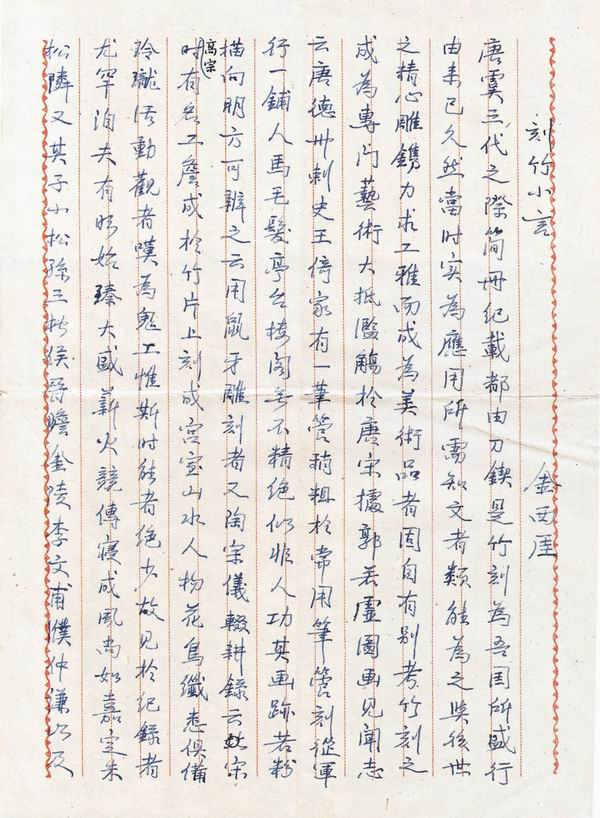 刻竹小言
金西厓
唐虞三代之際簡冊紀載都由刀鍥是竹刻為吾国所盛行
由来已久然當时实為應用所需知文者類能為之與後世
之精心雕鐫力求工雅而成為美術品者固自有别考竹刻之
成為專门藝術大抵濫觴於唐宋據郭若虛圖画见聞志
云唐德州刺史王倚家有一筆管稍粗於常用筆管刻從軍
行一鋪人馬毛髮亭台楼阁无不精绝似非人功其画跡若粉
描向明方可辨之云用鼠牙雕刻者又陶宗儀輟耕錄云宋
高宗
时有詹成於竹片上刻成宫室山水人物花鳥纖悉俱備
玲瓏活動觀者嘆為鬼工惟斯时能者绝少故见於纪錄者
尤罕洎夫有明始臻大盛薪火競傳寝成風尚如嘉定朱
松隣又其子小松孫三松侯晉瞻金陵李文甫濮仲谦以及